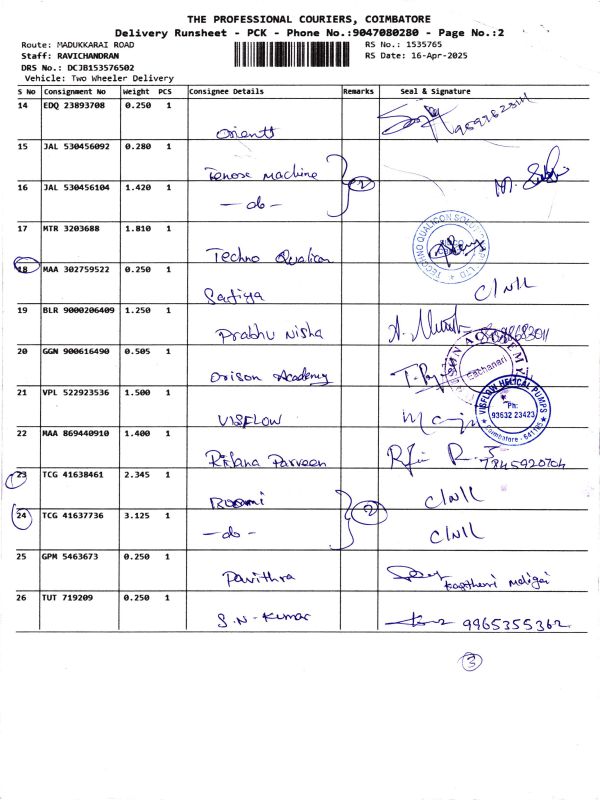 THE PROFESSIONAL COURIERS, COIMBATORE
Delivery Runsheet - PCK - Phone No.:9047080280 - Page No.:2
Route: MADUKKARAI ROAD
RS No.: 1535765
Staff: RAVICHANDRAN
RS Date: 16-Apr-2025
DRS No.: DCJB153576502
Vehicle: Two Wheeler Delivery
S No Consignment No Weight PCS Consignee Details Remarks Seal & Signature
14 EDQ 23893708 0.250 1
Orientt
15 JAL 530456092 0.280 1
Tenose Machine
2
16 JAL 530456104 1.420 1
- do -
17 MTR 3203688 1.810 1
Techno Qualicon
18 MAA 302759522 0.250 1
Sadiya C/N/L
19 BLR 9000206409 1.250 1
Prabhu Nisha
20 GGN 900616490 0.505 1
Orison Academy
21 VPL 522923536 1.500 1
VISFLOW
VISFLOW HELICAL PUMPS
Ph:
93632 23423
Coimbatore - 641 105
22 MAA 869440910 1.400 1
Rifana Parveen 7845920704
23 TCG 41638461 2.345 1
Rusmi C/N/L
2
24 TCG 41637736 3.125 1
- do - C/N/L
25 GPM 5463673 0.250 1
Pavithra
26 TUT 719209 0.250 1
S.N - Kumar 9965355362
3